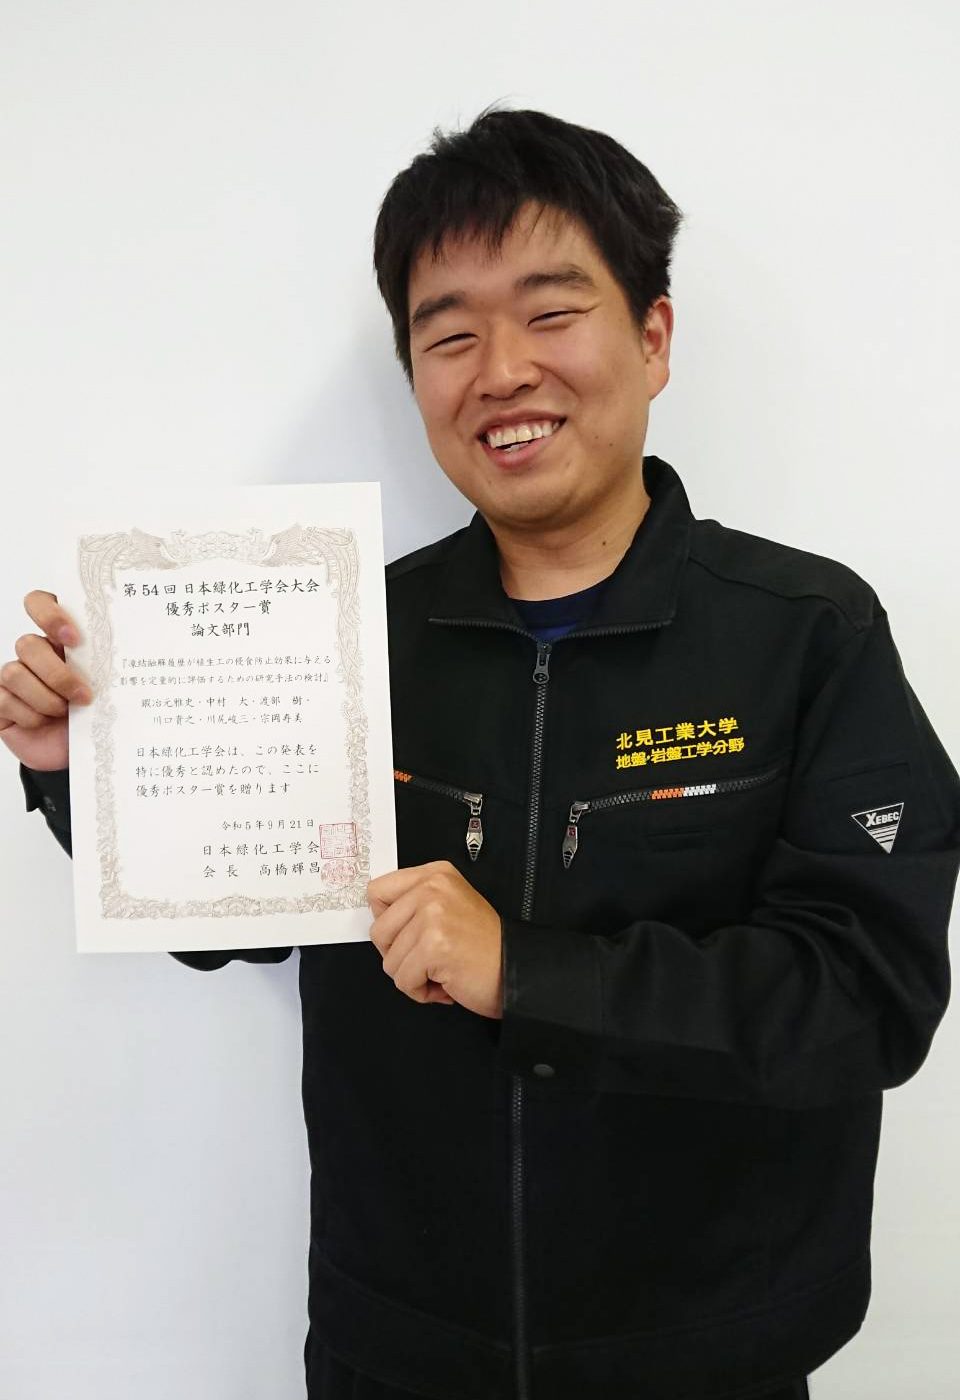 第 54 回 日本緑化工学会大会
優秀ポスター賞
論文部門
『凍結融解履歴が植生工の侵食防止効果に与える
影響を定量的に評価するための研究手法の検討』
鍛冶元雅史・中村　大・渡部　樹・
川口貴之・川尻峻三・宗岡寿美
日本緑化工学会は、この発表を
特に優秀と認めたので、ここに
優秀ポスター賞を贈ります
令和５年９月 21 日
日本緑化工学会
会　長　高橋輝昌
北見工業大学
地盤・岩盤工学分野
XEBEC